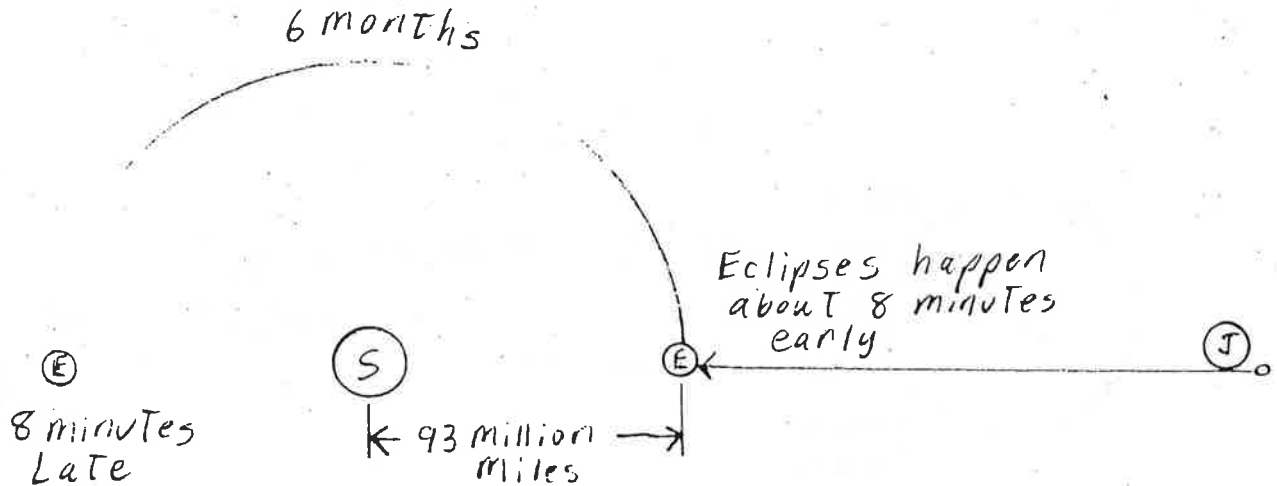 6 months
Eclipses happen
about 8 minutes
early
E
S
E
J
8 minutes
Late
93 million
miles